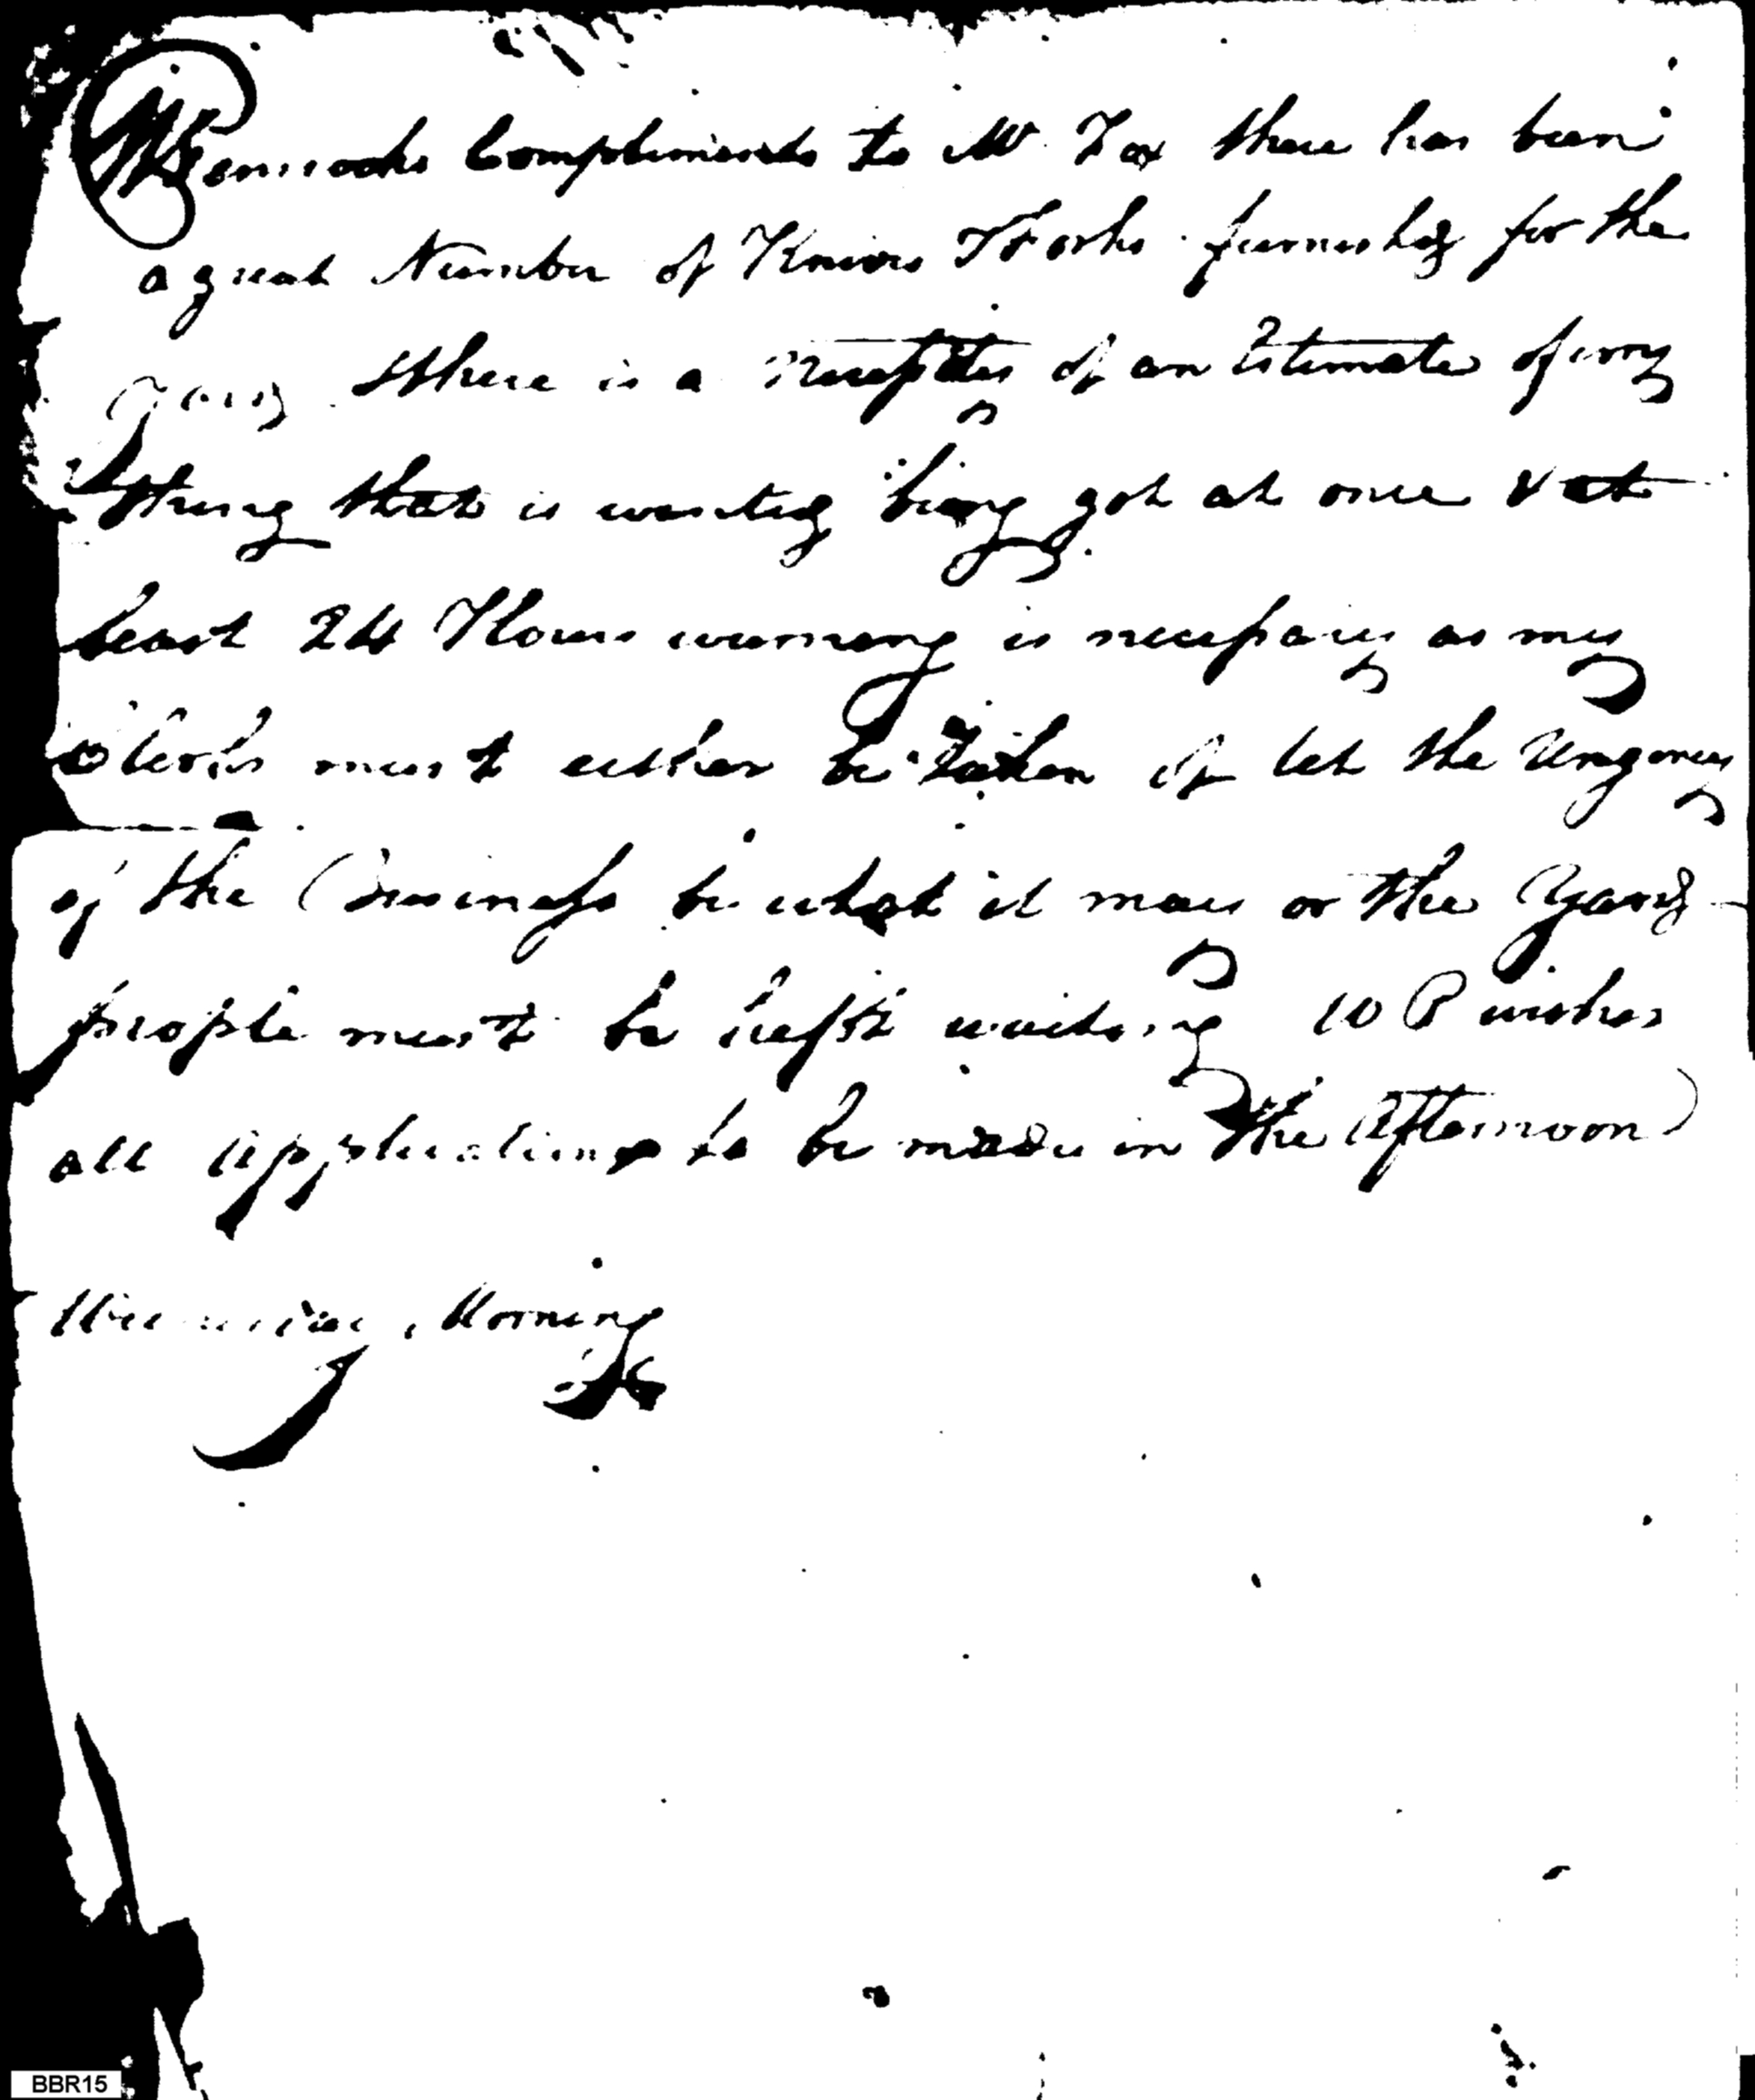 Compliments to Mr. Fox there has been
a great Number of Knives & Forks furnishg for the
there is a necessity of an Estimate of every
thing that is wanting being got at once & at
least 24 Hours warning is necessary as my
Clerks must either be taken off let the Urgency
of the Business be what it may or the Gang
people must be kept waiting W P wishes
all applications to be made in the Afternoon
Morning
BBR15